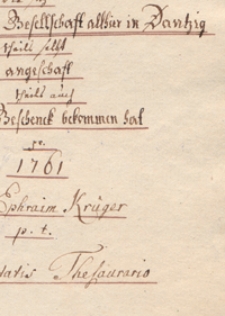 Gesellschaft alhier in Dantzig
theils selbst
angeschaft
theils auch
Geschenck bekommen hat
1761
Ephraim Krüger
p. t.
tatis Thesaurario